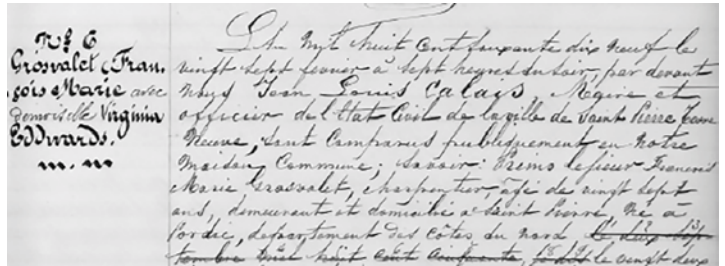 Nº 6
Grosvalet, Fran-
çois Marie avec
demoiselle Virginia
Edwards.
L'An Mil huit cent soixante dix neuf le
vingt sept février à sept heures du soir, par devant
Nous Jean Louis Calays, Maire et
officier de l'Etat Civil de la ville de Saint Pierre Terre
Neuve, sont Comparus publiquement en notre
Maison Commune; savoir: Primo le sieur François
Marie Grosvalet, charpentier, âgé de vingt sept
ans, demeurant et domicilié à Saint Pierre, Né à
Pordic, département des Côtes du Nord le deux sep-
tembre mil huit cent cinquante, le vingt deux